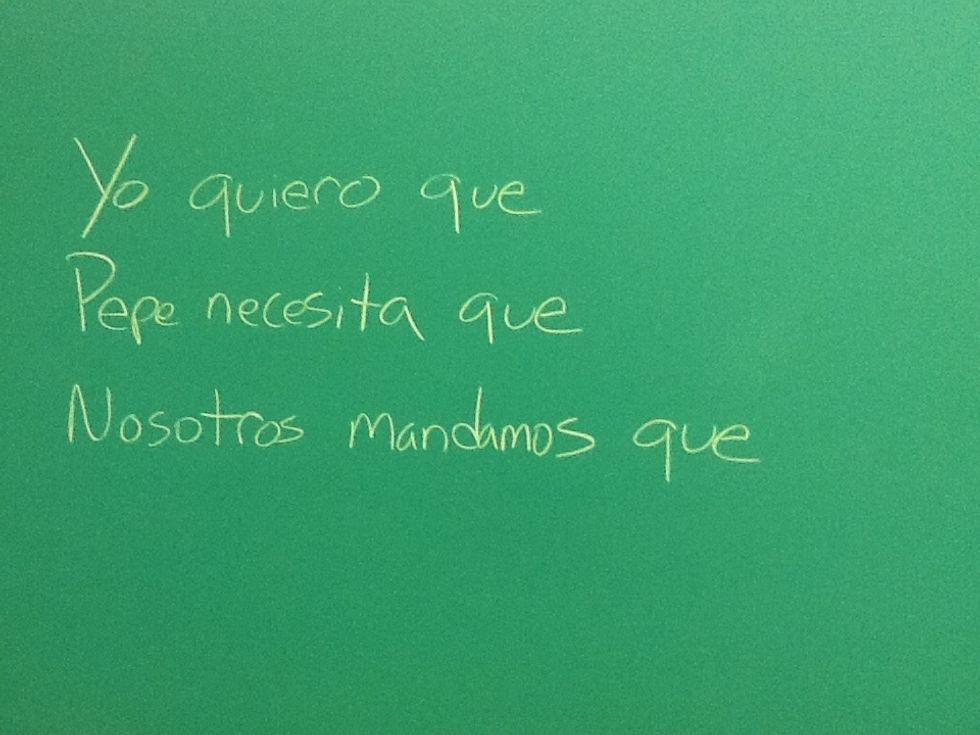 Yo quiero que
Pepe necesita que
Nosotros mandamos que